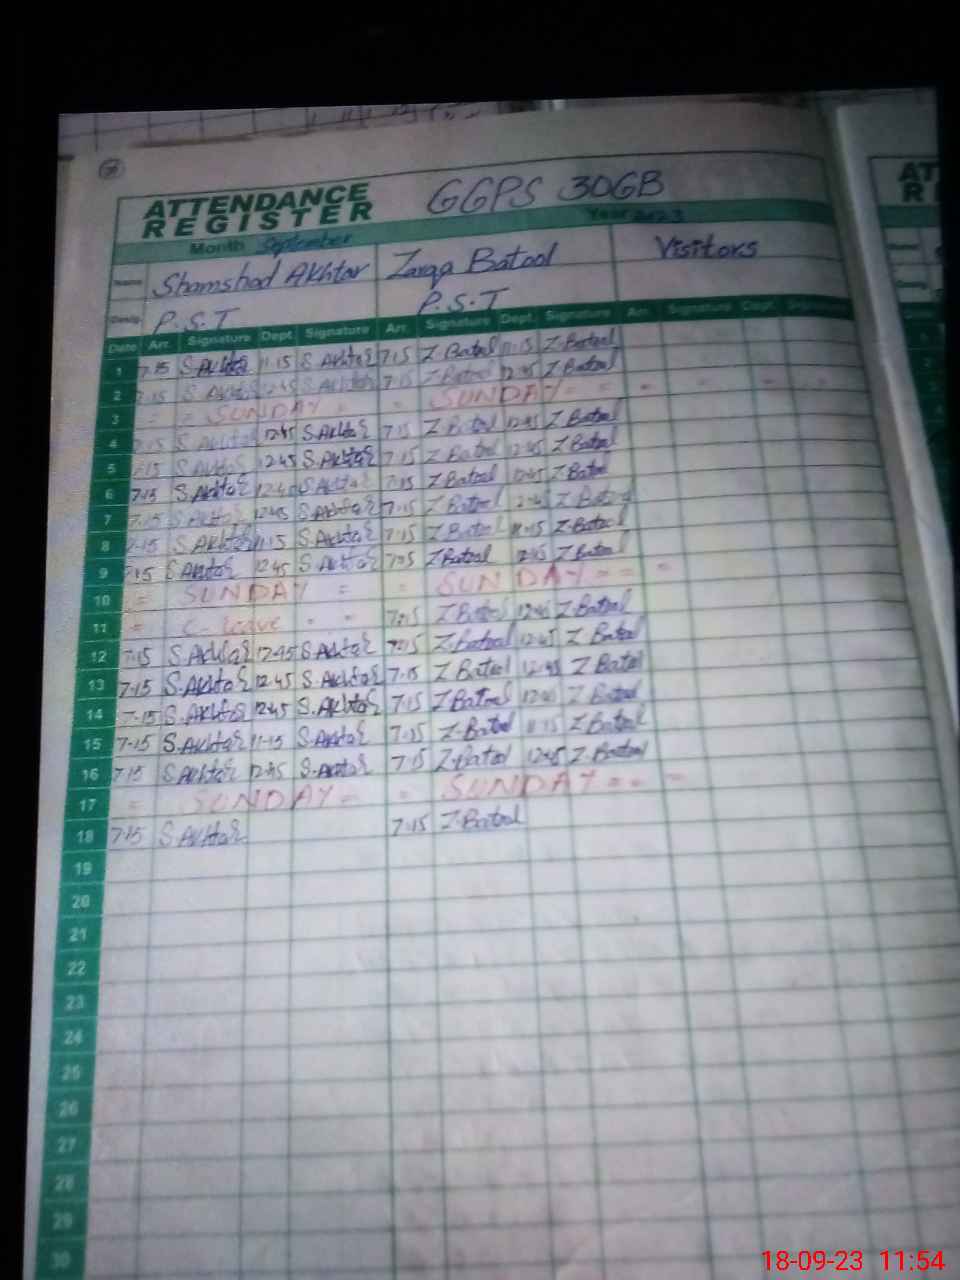 ATTENDANCE
REGISTER
GGPS 306B
Month September Year 2023
Name Shamshad Akhtar Zarqa Batool Visitors
Desig. P.S.T P.S.T
Date Arr. Signature Dept. Signature Arr. Signature Dept. Signature Arr. Signature Dept. Signature
1 7-15 S.Akhtar 11-15 S.Akhtar 7-15 Z Batool 11-15 Z Batool
2 7-15 S.Akhtar 12-45 S.Akhtar 7-15 Z Batool 12-45 Z Batool
3 = = SUNDAY = = SUNDAY = = - - - -
4 7-15 S.Akhtar 12-45 S.Akhtar 7-15 Z Batool 12-45 Z Batool
5 7-15 S.Akhtar 12-45 S.Akhtar 7-15 Z Batool 12-45 Z Batool
6 7-15 S.Akhtar S.Akhtar 7-15 Z Batool 12-45 Z Batool
7 7-15 S.Akhtar 12-45 S.Akhtar 7-15 Z Batool 12-45 Z Batool
8 7-15 S.Akhtar 11-15 S.Akhtar 7-15 Z Batool 11-15 Z Batool
9 7-15 S.Akhtar 12-45 S.Akhtar Z Batool 12-45 Z Batool
10 = SUNDAY = = SUNDAY = = =
11 = C-leave " " 7-15 Z Batool 12-45 Z Batool
12 7-15 S.Akhtar 12-45 S.Akhtar 7-15 Z-Batool 12-45 Z Batool
13 7-15 S.Akhtar 12-45 S.Akhtar 7-15 Z Batool 12-45 Z Batool
14 7-15 S.Akhtar 12-45 S.Akhtar 7-15 Z Batool Z Batool
15 7-15 S.Akhtar 11-15 S.Akhtar 7-15 Z-Batool 11-15 Z Batool
16 7-15 S.Akhtar 12-45 S.Akhtar 7-15 Z-Batool 12-45 Z-Batool
17 = SUNDAY = = SUNDAY = = =
18 7-15 S.Akhtar 7-15 Z-Batool
19
20
21
22
23
24
25
26
27
28
29
30
18-09-23 11:54